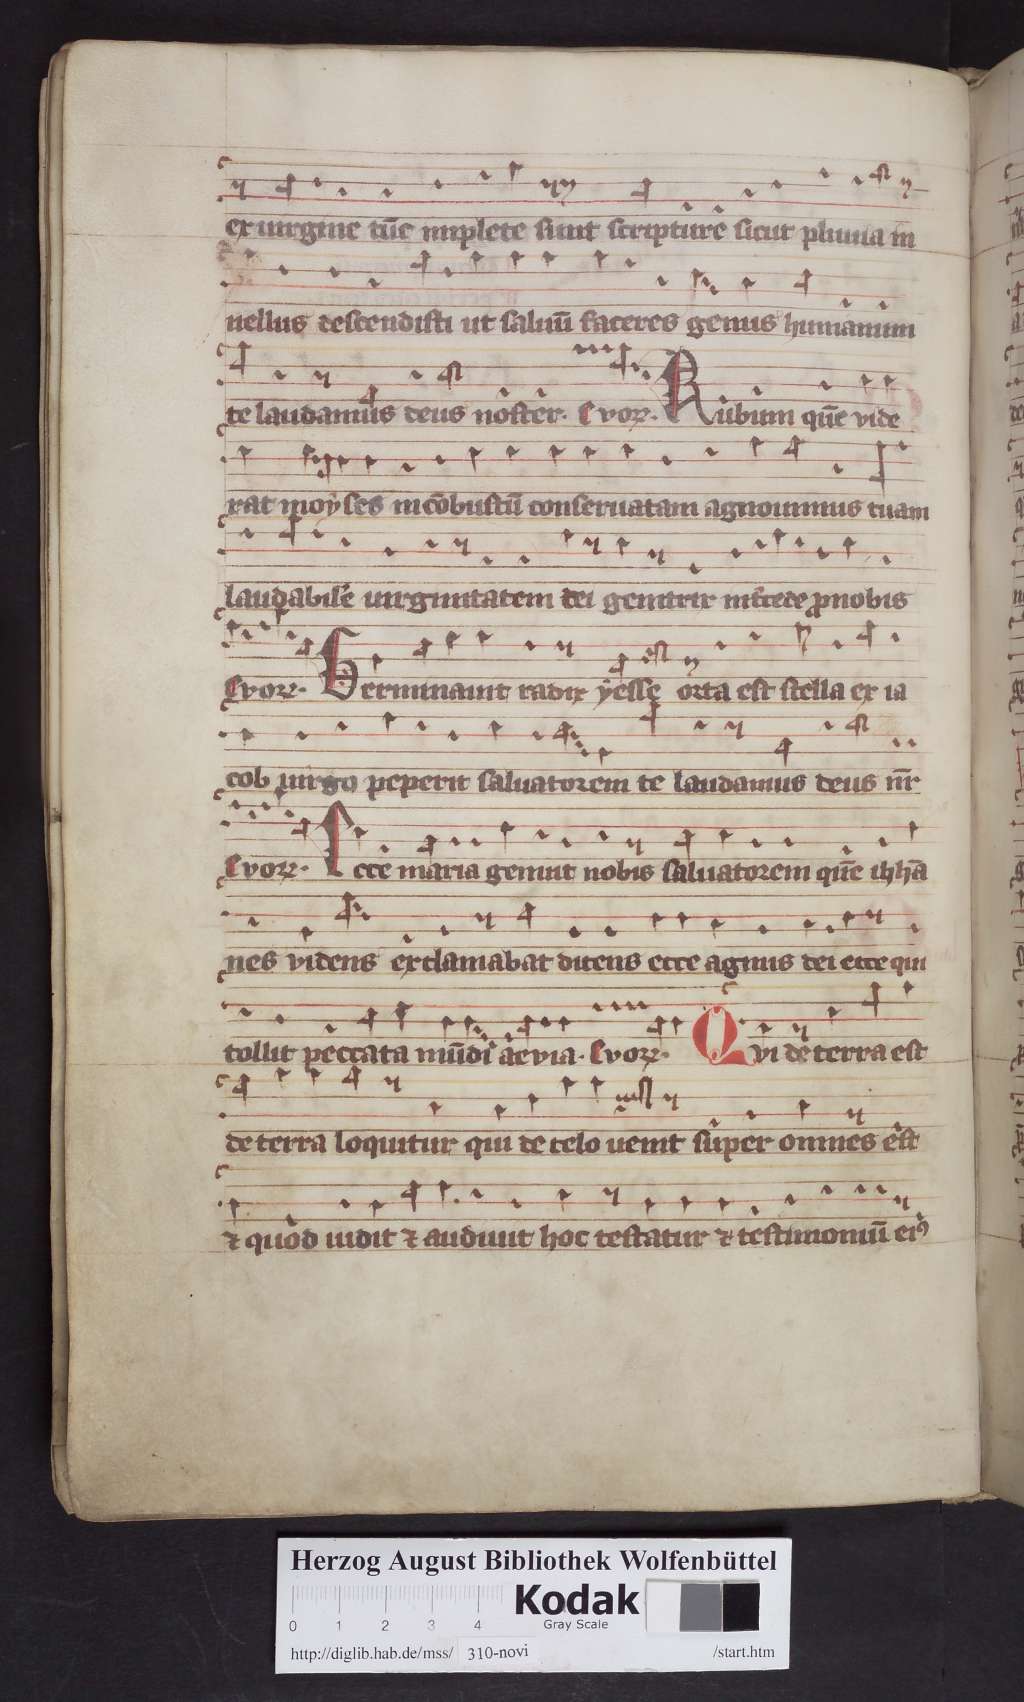 ex uirgine tūc implete sunt scripture sicut pluuia in
uellus descendisti ut saluū faceres genus humanum
te laudamus deus noster. Evoꝝ. Rubum quē vide
rat moyses incōbustū conseruatam agnouimus tuam
laudabilē uirginitatem dei genitrix int̄cede ꝓ nobis
Evoꝝ. Germinauit radix yesse orta est stella ex ia
cob uirgo peperit saluatorem te laudamus deus nr̄
Evoꝝ. Ecce maria genuit nobis saluatorem quē ioh̄a
nes videns exclamabat dicens ecce agnus dei ecce qui
tollit peccata mūdi aevia. Evoꝝ. Qvi de terra est
de terra loquitur qui de celo uenit super omnes est
⁊ quod uidit ⁊ audiuit hoc testatur ⁊ testimoniū eiꝰ
Herzog August Bibliothek Wolfenbüttel
Kodak
0 1 2 3 4 Gray Scale
http://diglib.hab.de/mss/ 310-novi /start.htm